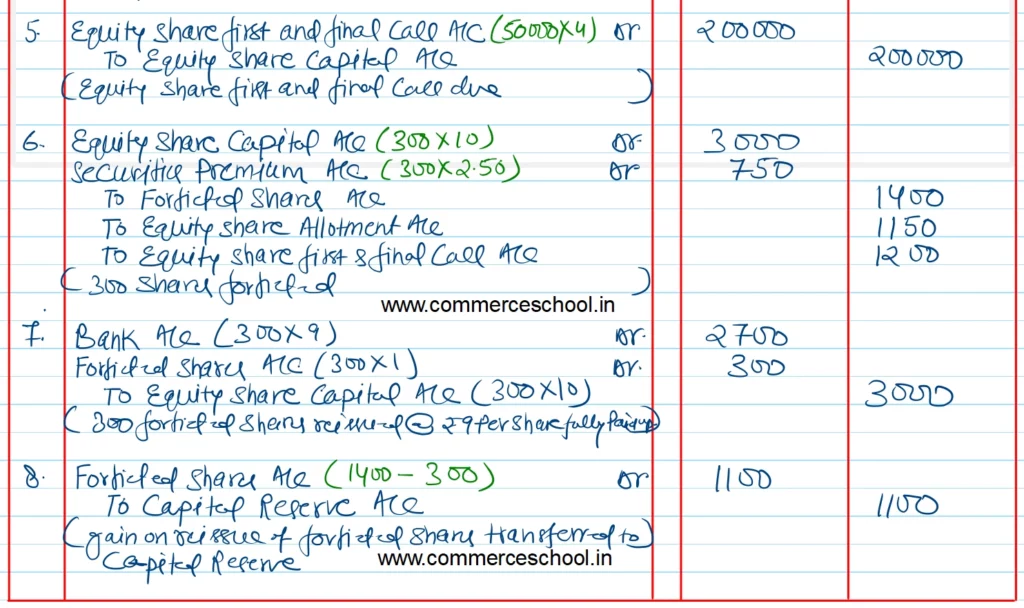 5. Equity Share first and final Call A/C (50000×4) Dr 200000
To Equity Share Capital A/c 200000
(Equity Share first and final Call due)
6. Equity Share Capital A/c (300×10) Dr. 3000
Securities Premium A/c (300×2.50) Dr 750
To Forfeited Shares A/c 1400
To Equity Share Allotment A/c 1150
To Equity Share first & final Call A/c 1200
(300 Shares forfeited)
www.commerceschool.in
7. Bank A/c (300×9) Dr. 2700
Forfeited Shares A/C (300×1) Dr. 300
To Equity Share Capital A/c (300×10) 3000
(300 forfeited Shares reissued @ ₹9 Per Share fully Paid up)
8. Forfeited Share A/c (1400-300) Dr 1100
To Capital Reserve A/c 1100
(gain on reissue of forfeited Shares transferred to)
Capital Reserve
www.commerceschool.in